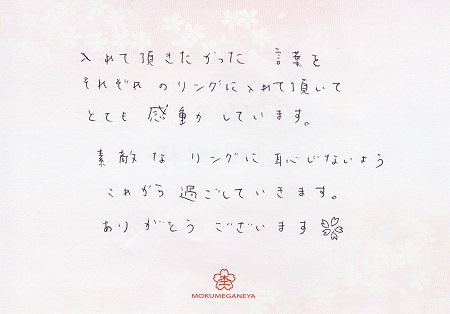 入れて頂きたかった 言葉を
それぞれ のリングに入れて頂いて
とても 感動 しています。
素敵 な リングに 恥じないよう
これから 過ごしていきます。
ありがとう ございます
MOKUMEGANEYA